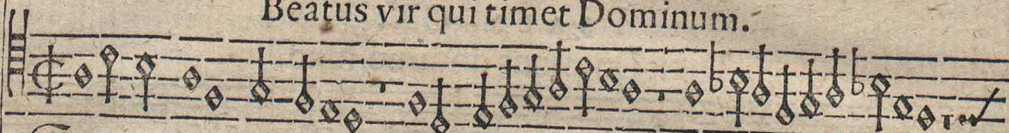 Beatus vir qui timet Dominum.